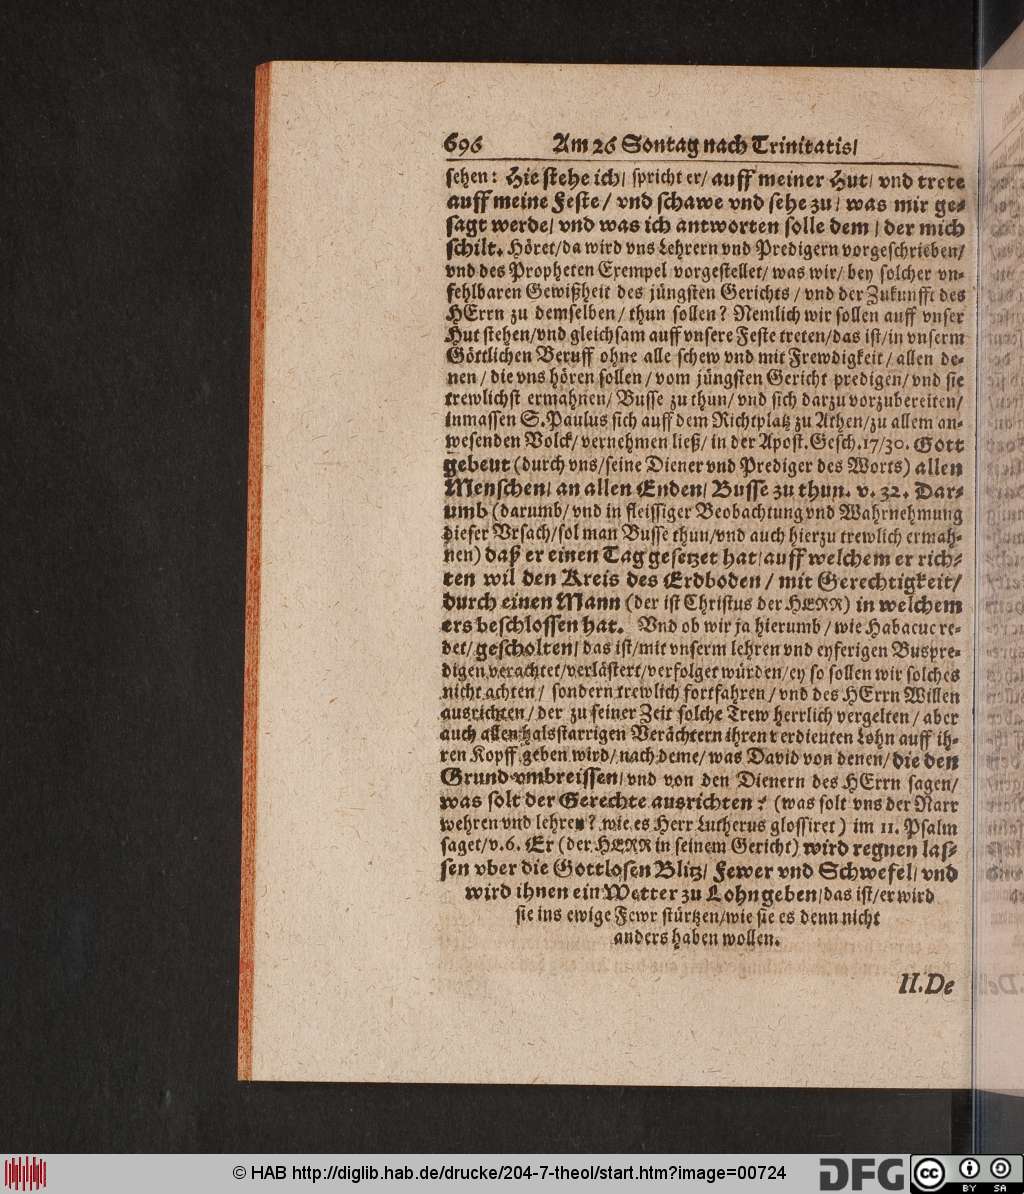 696 Am 26 Sontag nach Trinitatis/
sehen: Hie stehe ich/ spricht er/ auff meiner Hut/ vnd trete
auff meine Feste / vnd schawe vnd sehe zu / was mir ge-
sagt werde/ vnd was ich antworten solle dem / der mich
schilt. Höret/da wird vns Lehrern vnd Predigern vorgeschrieben/
vnd des Propheten Exempel vorgestellet/ was wir/ bey solcher vn-
fehlbaren Gewißheit des jüngsten Gerichts / vnd der Zukunfft des
HErrn zu demselben/ thun sollen? Nemlich wir sollen auff vnser
Hut stehen/vnd gleichsam auff vnsere Feste treten/das ist/in vnserm
Göttlichen Beruff ohne alle schew vnd mit Frewdigkeit/ allen de-
nen / die vns hören sollen / vom jüngsten Gericht predigen/ vnd sie
trewlichst ermahnen/ Busse zu thun/ vnd sich darzu vorzubereiten/
inmassen S.Paulus sich auff dem Richtplatz zu Athen/zu allem an-
wesenden Volck/ vernehmen ließ/ in der Apost.Gesch.17/30. Gott
gebeut (durch vns/seine Diener vnd Prediger des Worts) allen
Menschen/ an allen Enden/ Busse zu thun. v. 32. Dar-
umb (darumb/ vnd in fleissiger Beobachtung vnd Wahrnehmung
dieser Vrsach/sol man Busse thun/vnd auch hierzu trewlich ermah-
nen) daß er einen Tag gesetzet hat/ auff welchem er rich-
ten wil den Kreis des Erdboden / mit Gerechtigkeit/
durch einen Mann (der ist Christus der HERR) in welchem
ers beschlossen hat. Vnd ob wir ja hierumb / wie Habacuc re-
det/ gescholten/ das ist/mit vnserm lehren vnd eyferigen Buspre-
digen verachtet/verlästert/verfolget würden/ey so sollen wir solches
nicht achten / sondern trewlich fortfahren / vnd des HErrn Willen
ausrichten / der zu seiner Zeit solche Trew herrlich vergelten / aber
auch allen halsstarrigen Verächtern ihren verdieuten Lohn auff ih-
ren Kopff geben wird/ nach deme/ was David von denen/ die den
Grund vmbreissen/ vnd von den Dienern des HErrn sagen/
was solt der Gerechte ausrichten? (was solt vns der Narr
wehren vnd lehren? wie es Herr Lutherus glossiret) im 11. Psalm
saget/v.6. Er (der HERR in seinem Gericht) wird regnen las-
sen vber die Gottlosen Blitz/ Fewer vnd Schwefel/ vnd
wird ihnen ein Wetter zu Lohn geben/das ist/er wird
sie ins ewige Fewr stürtzen/wie sie es denn nicht
anders haben wollen.
II.De
© HAB http://diglib.hab.de/drucke/204-7-theol/start.htm?image=00724
DFG
cc BY SA